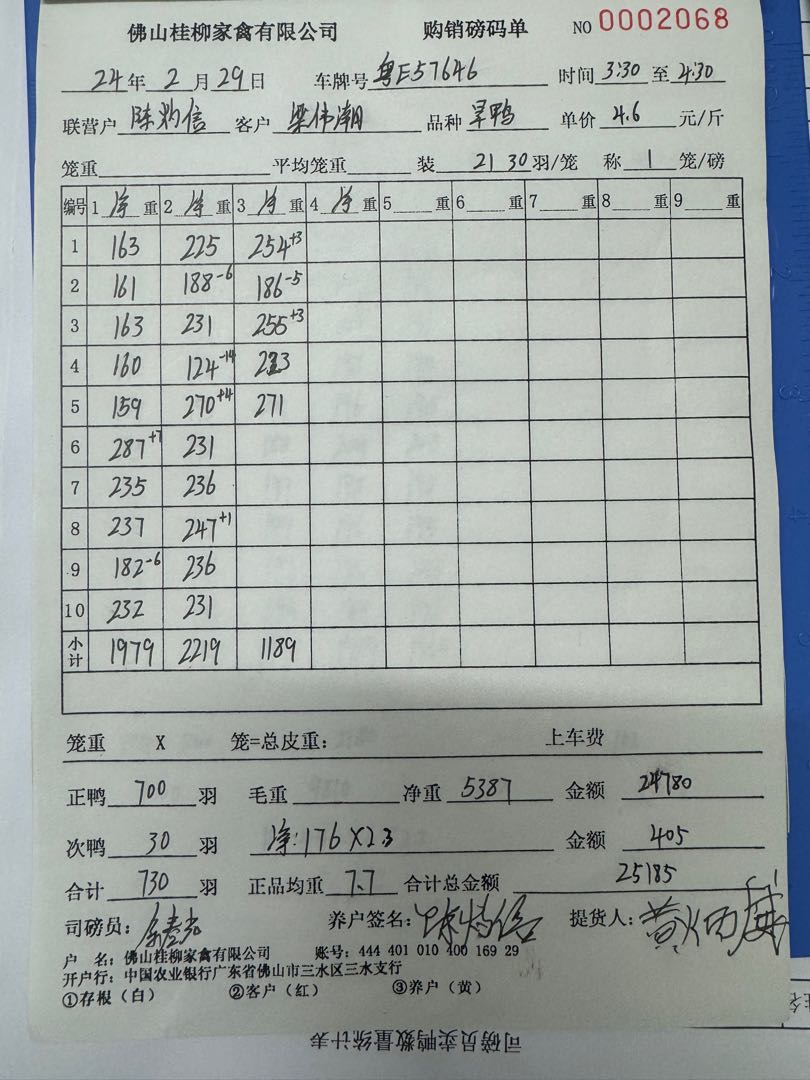 佛山桂柳家禽有限公司 购销磅码单 NO 0002068
24年 2月 29日 车牌号 粤E57646 时间 3:30 至 4:30
联营户 陈灼信 客户 梁伟潮 品种 旱鸭 单价 4.6 元/斤
笼重 平均笼重 装 21 30 羽/笼 称 1 笼/磅
编号 1 净 重 2 净 重 3 净 重 4 净 重 5 重 6 重 7 重 8 重 9 重
1 163 225 254+3
2 161 188-6 186-5
3 163 231 255+3
4 160 124-14 223
5 159 270+4 271
6 287+7 231
7 235 236
8 237 247+1
9 182-6 236
10 232 231
小计 1979 2219 1189
笼重 X 笼=总皮重: 上车费
正鸭 700 羽 毛重 净重 5387 金额 24780
次鸭 30 羽 净:176×2.3 金额 405
合计 730 羽 正品均重 7.7 合计总金额 25185
司磅员: 养户签名: 提货人:
户 名: 佛山桂柳家禽有限公司 账号: 444 401 010 400 169 29
开户行: 中国农业银行广东省佛山市三水区三水支行
①存根（白） ②客户（红） ③养户（黄）
司磅员卖鸭数量统计表